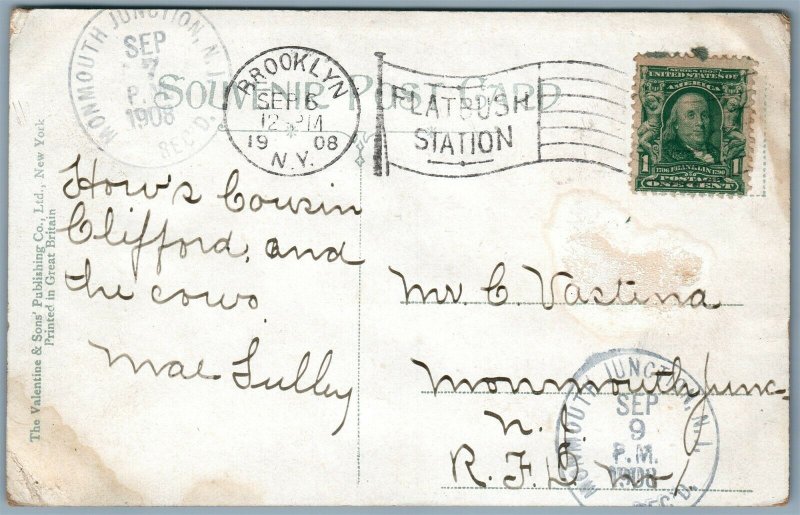 SOUVENIR POST CARD
MONMOUTH JUNCTION, N.J.
SEP
7
P.M.
1908
REC'D.
BROOKLYN
SEP 6
12 PM
19 08
N.Y.
FLATBUSH
STATION
SERIES 1902
UNITED STATES OF
AMERICA
1 1706 FRANKLIN 1790 1
POSTAGE
ONE CENT
The Valentine & Sons' Publishing Co., Ltd., New York
Printed in Great Britain
How's Cousin
Clifford, and
the cows.
Mae Lulley
Mr. C. Vastina
Monmouth Junc-
N.J.
R.F.D.
MONMOUTH JUNCTION, N.J.
SEP
9
P.M.
1908
REC'D.